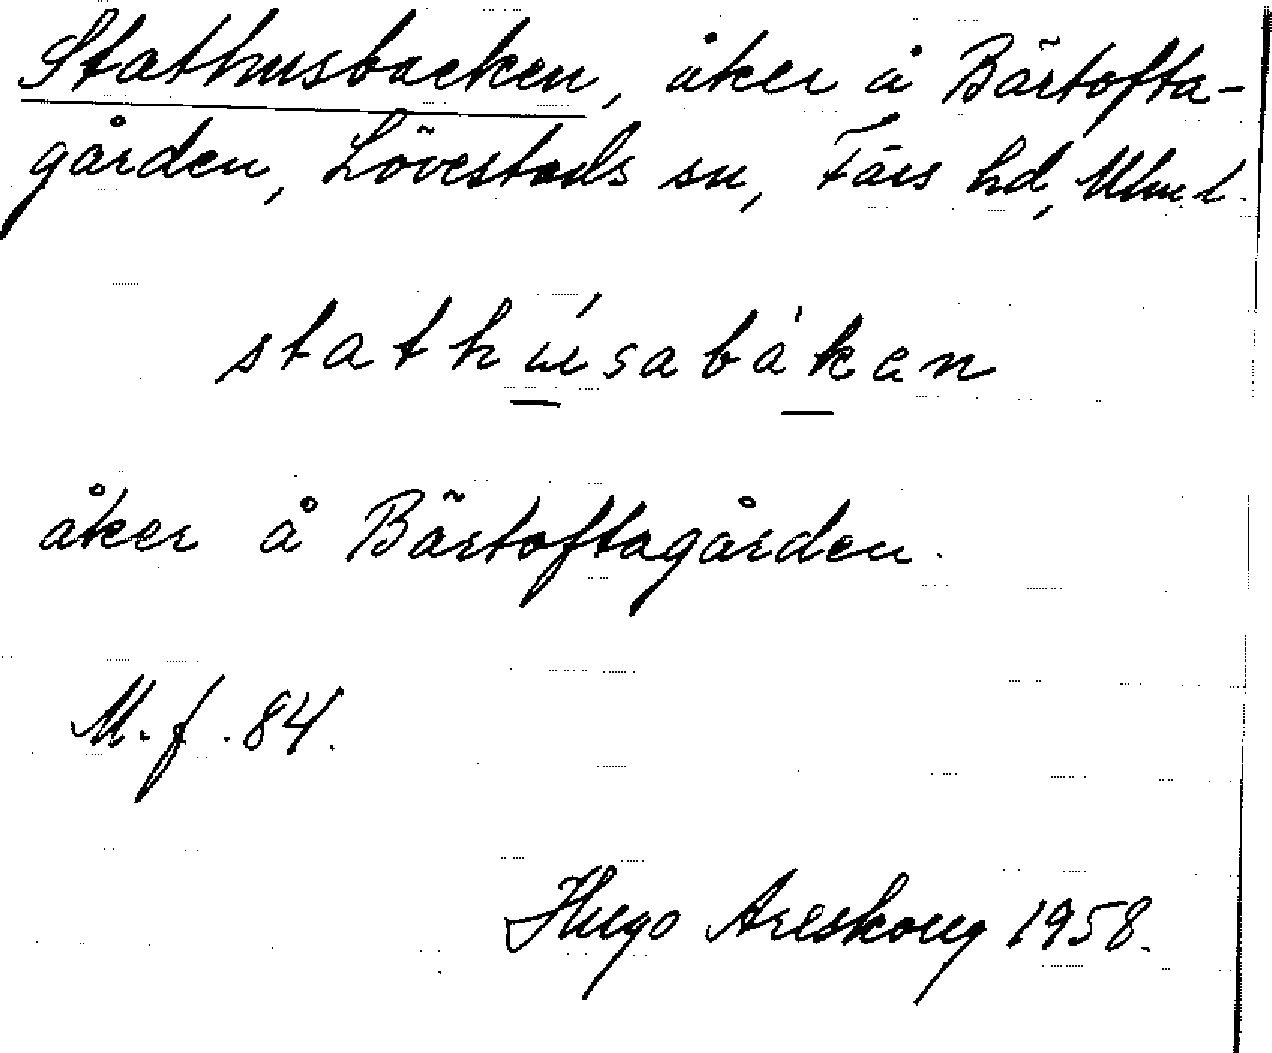 Stathusbacken, åker å Bärtofta-
gården, Lövestads sn, Färs hd, Mlm l.
stathúsabàkan
åker å Bärtoftagården.
M. f. 84.
Hugo Areskoug 1958.